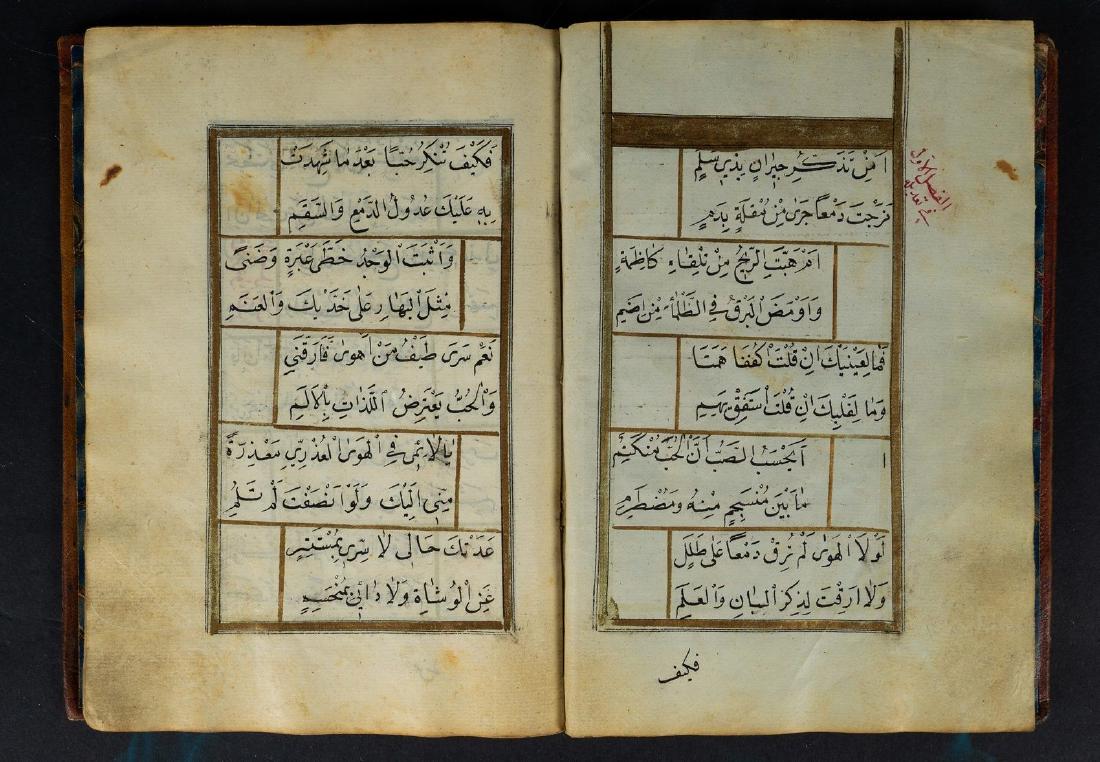 الفصل الاول
اَمِنْ تَذَكُّرِ جِيرَانٍ بِذِي سَلَمٍ
مَزَجْتَ دَمْعاً جَرٰى مِنْ مُقْلَةٍ بِدَمٍ
اَمْ هَبَّتِ الرِّيْحُ مِنْ تِلْقَاءِ كَاظِمَةٍ
وَاَوْمَضَ الْبَرْقُ فِي الظَّلْمَاءِ مِنْ اِضَمِ
فَمَا لِعَيْنَيْكَ اِنْ قُلْتَ اكْفُفَا هَمَتَا
وَمَا لِقَلْبِكَ اِنْ قُلْتَ اسْتَفِقْ يَهِمِ
اَيَحْسَبُ الصَّبُّ اَنَّ الْحُبَّ مُنْكَتِمٌ
مَا بَيْنَ مُنْسَجِمٍ مِنْهُ وَمُضْطَرِمِ
لَوْلَا الْهَوٰى لَمْ تُرِقْ دَمْعاً عَلٰى طَلَلٍ
وَلَا اَرِقْتَ لِذِكْرِ الْبَانِ وَالْعَلَمِ
فكيف
فَكَيْفَ تُنْكِرُ حُبًّا بَعْدَ مَا شَهِدَتْ
بِهِ عَلَيْكَ عُدُولُ الدَّمْعِ وَالسَّقَمِ
وَاَثْبَتَ الْوَجْدُ خَطَّيْ عَبْرَةٍ وَضَنًى
مِثْلَ الْبَهَارِ عَلٰى خَدَّيْكَ وَالْعَنَمِ
نَعَمْ سَرٰى طَيْفُ مَنْ اَهْوٰى فَاَرَّقَنِي
وَالْحُبُّ يَعْتَرِضُ اللَّذَّاتِ بِالْاَلَمِ
يَا لَائِمِي فِي الْهَوٰى الْعُذْرِيِّ مَعْذِرَةً
مِنِّي اِلَيْكَ وَلَوْ اَنْصَفْتَ لَمْ تَلُمِ
عَدَتْكَ حَالِي لَا سِرِّي بِمُسْتَتِرٍ
عَنِ الْوُشَاةِ وَلَا دَائِي بِمُنْحَسِمِ